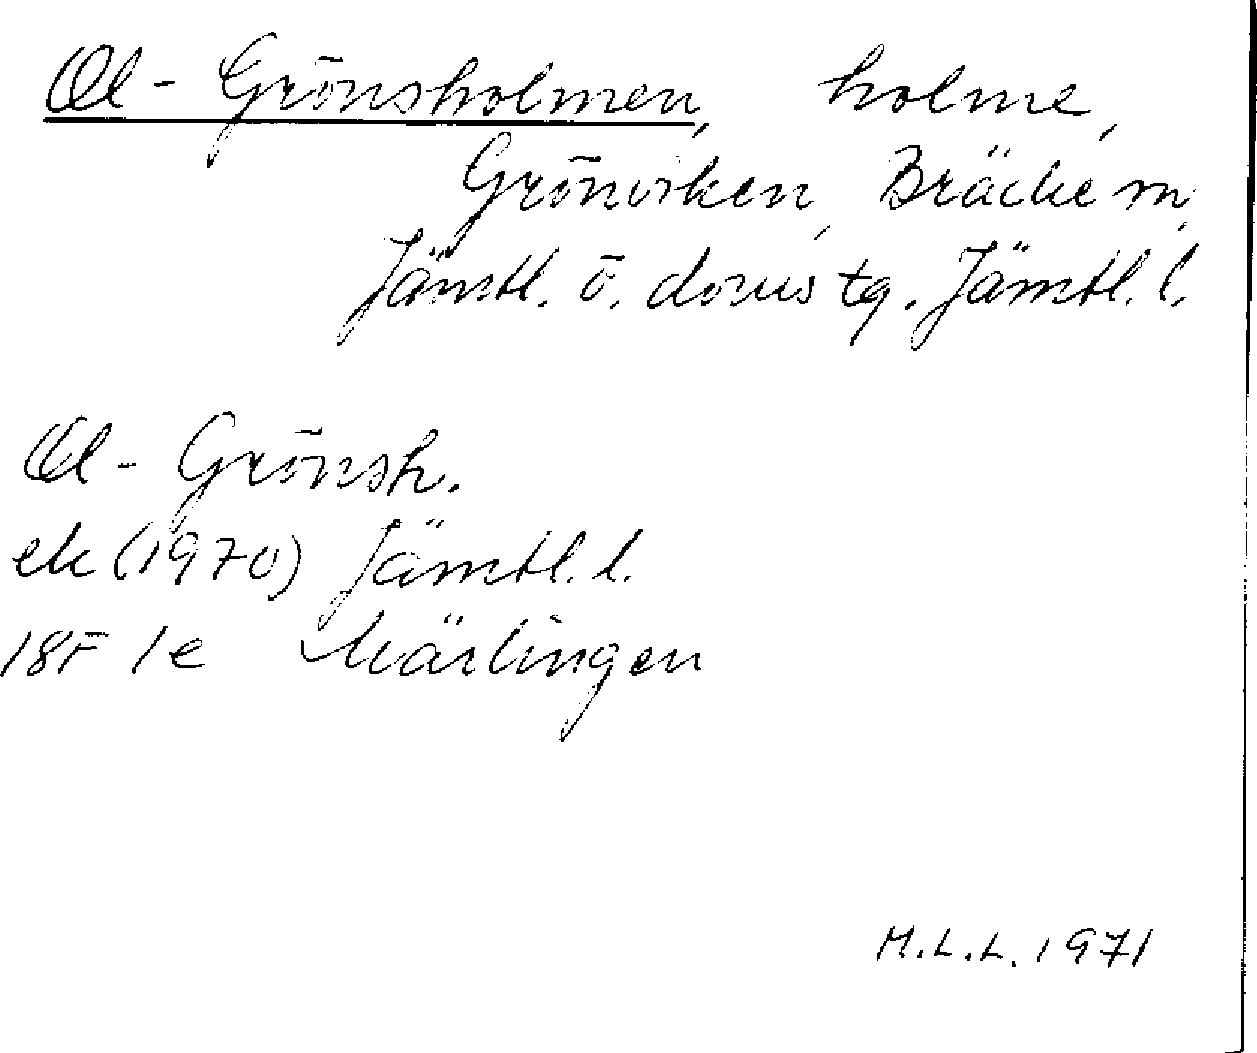 Ol-Grönsholmen, holme,
Grönviken, Bräcke sn,
Jämtl. ö. domstg. Jämtl. l.
Ol-Grönsh.
ek (1970) Jämtl. l.
18F 1e Märlingen
M.L.L. 1971